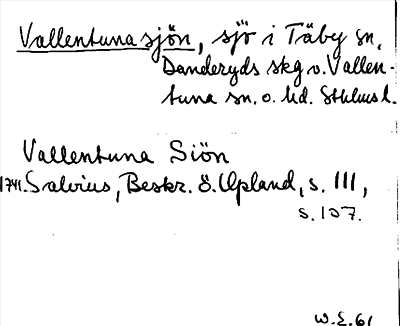 Vallentunasjön, sjö i Täby sn,
Danderyds skg o. Vallen-
tuna sn. o. hd. Sthlms l.
Vallentuna Siön
1741. Salvius, Beskr. Ö. Upland, s. 111,
s. 107.
W.E. 61